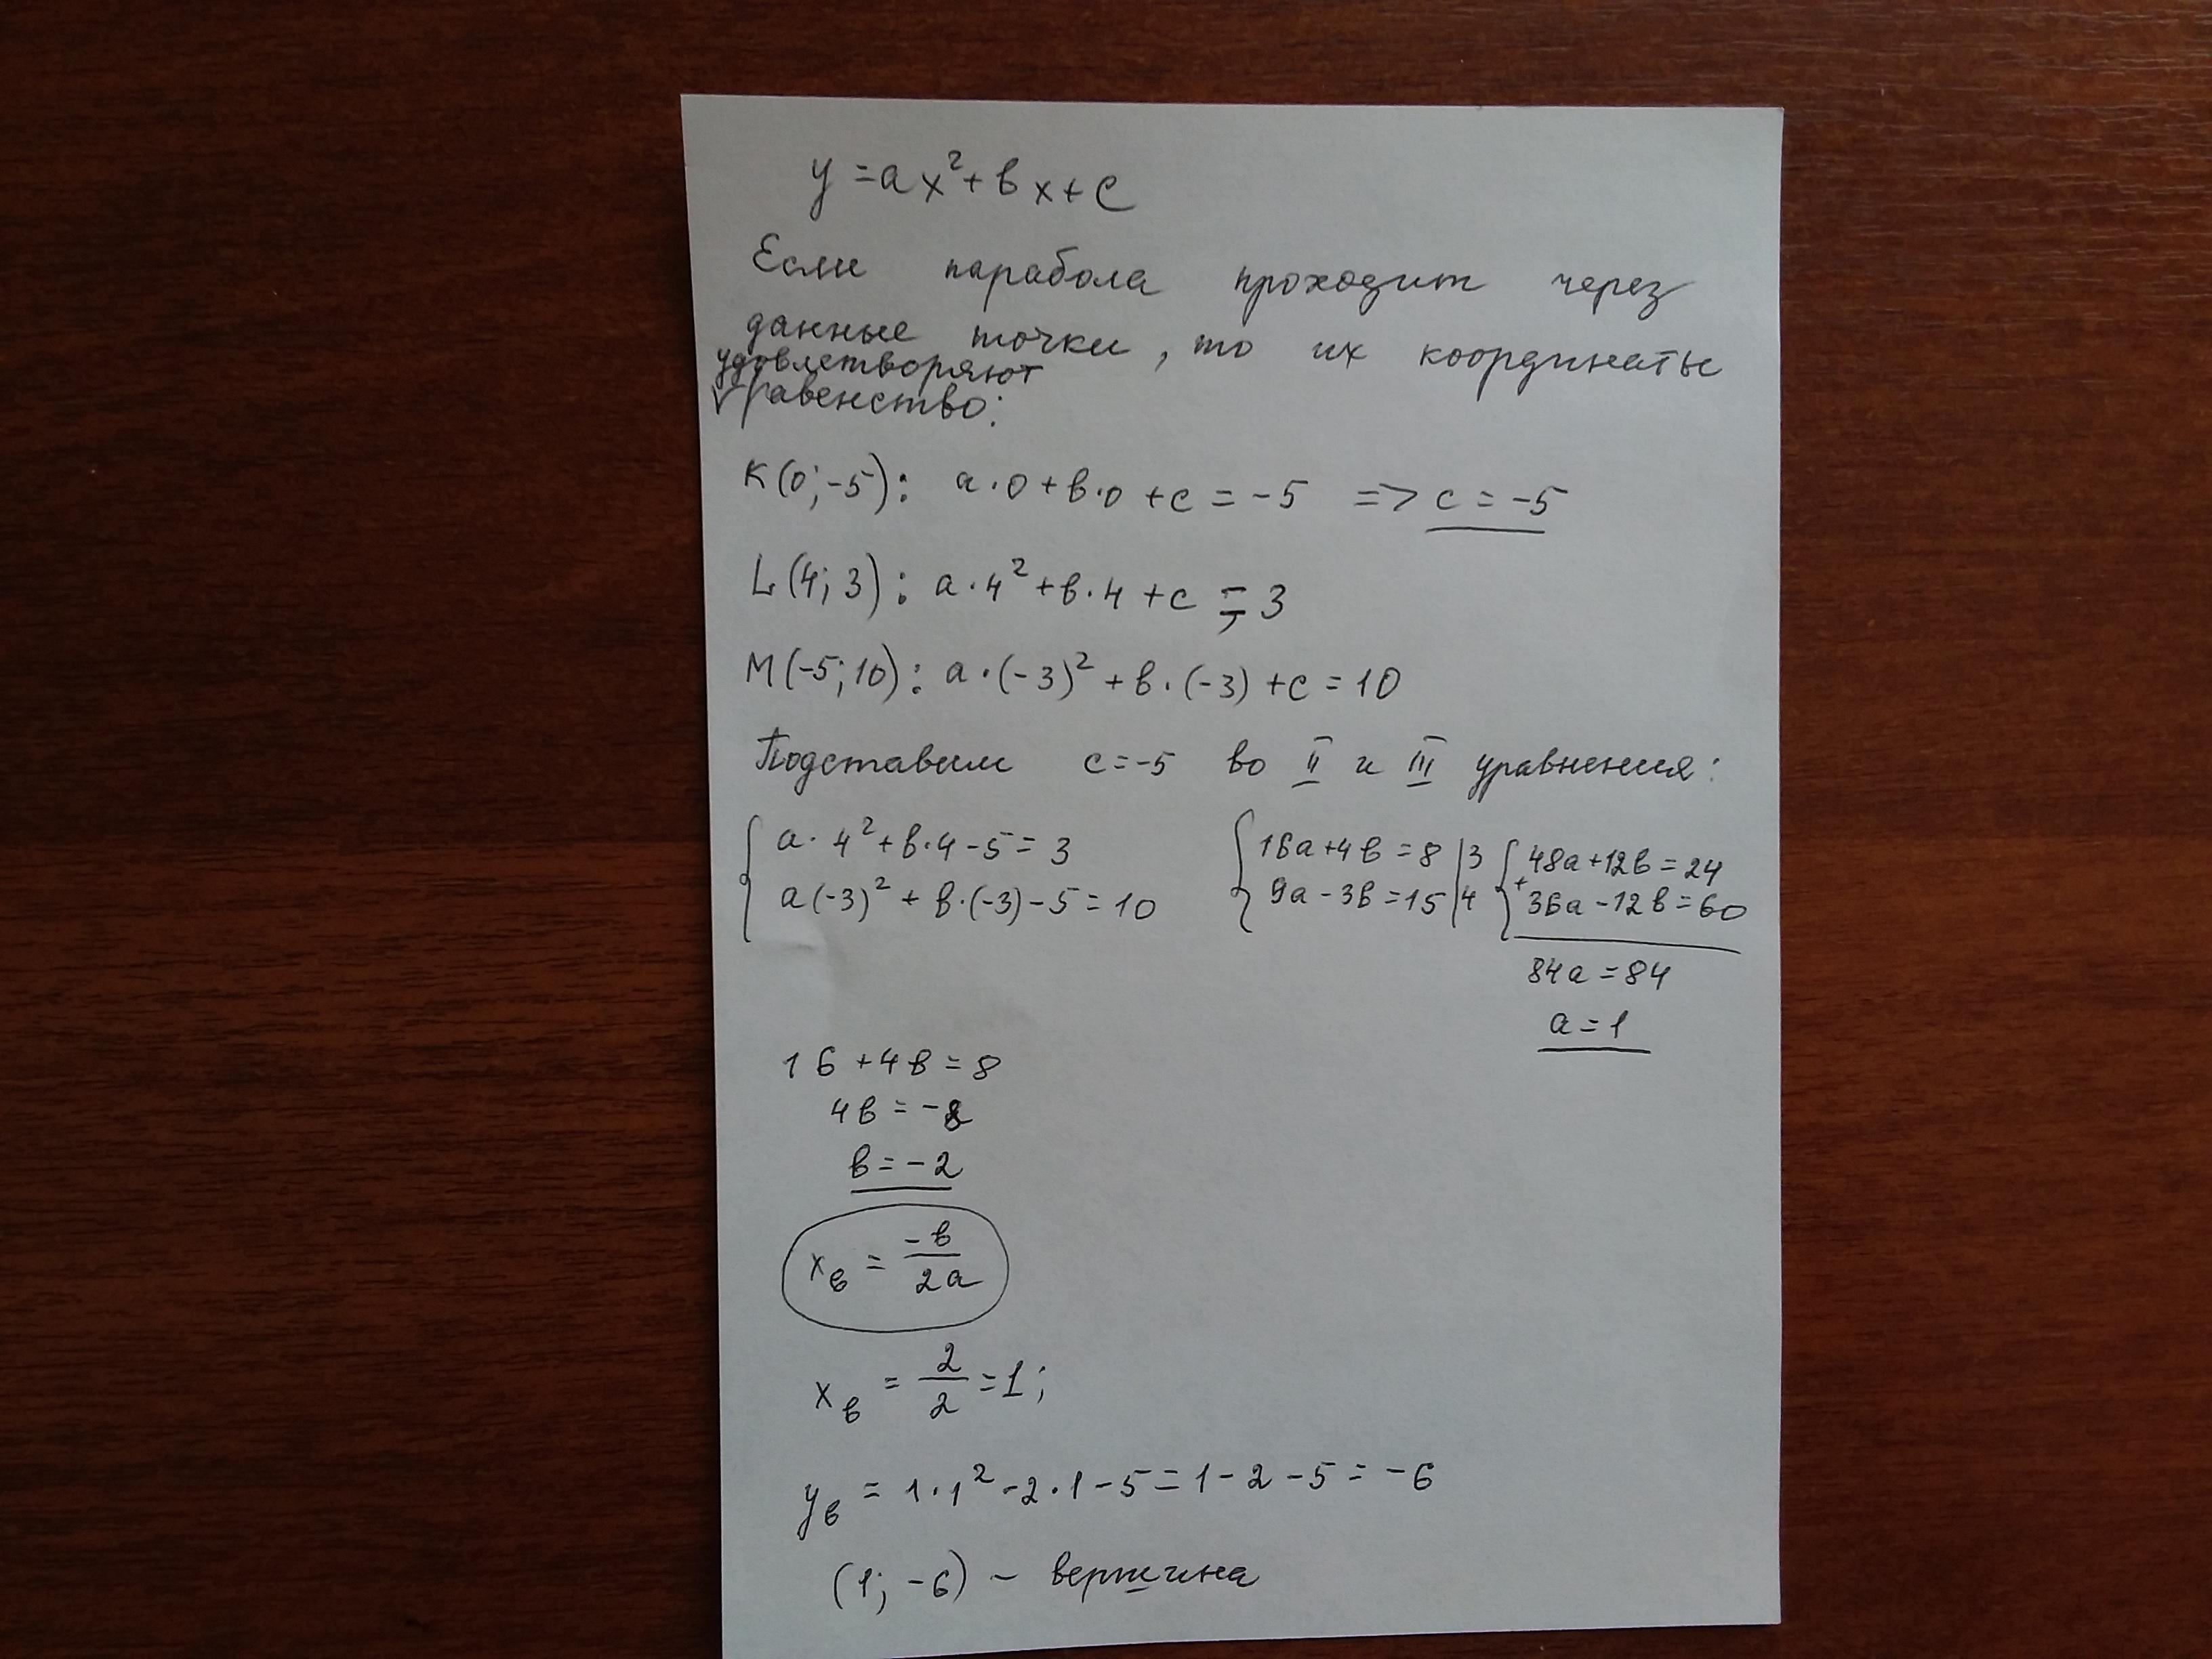 y = ax² + вx + c
Если парабола проходит через
данные точки, то их координаты
удовлетворяют
√ равенство:
K(0; -5): a·0 + в·0 + c = -5 => c = -5
L(4; 3): a·4² + в·4 + c = 3
M(-5; 10): a·(-3)² + в·(-3) + c = 10
Подставим c = -5 во II и III уравнения:
{ a·4² + в·4 - 5 = 3 { 16a + 4в = 8 |3 { 48a + 12в = 24
a(-3)² + в·(-3) - 5 = 10 9a - 3в = 15 |4 + 36a - 12в = 60
84a = 84
a = 1
16 + 4в = 8
4в = -8
в = -2
xв = -в/2a
xв = 2/2 = 1;
yв = 1·1² - 2·1 - 5 = 1 - 2 - 5 = -6
(1; -6) - вершина